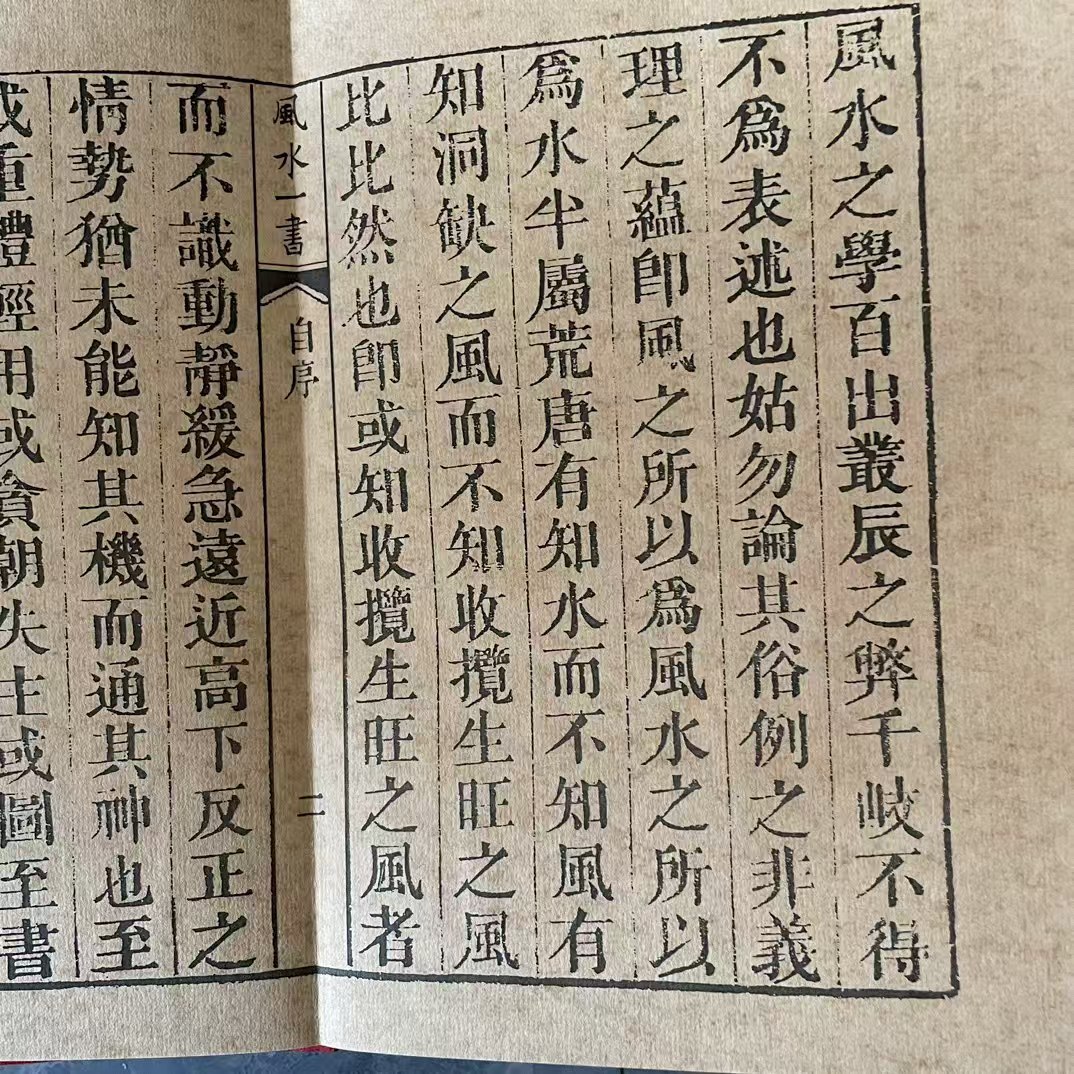 風水之學百出叢辰之弊千岐不得
不爲表述也姑勿論其俗例之非義
理之蘊卽風之所以爲風水之所以
爲水半屬荒唐有知水而不知風有
知洞缺之風而不知收攬生旺之風
比比然也卽或知收攬生旺之風者
風水一書
自序
二
而不識動靜緩急遠近高下反正之
情勢猶未能知其機而通其神也至
或重體輕用或貪朝失主或圖至書